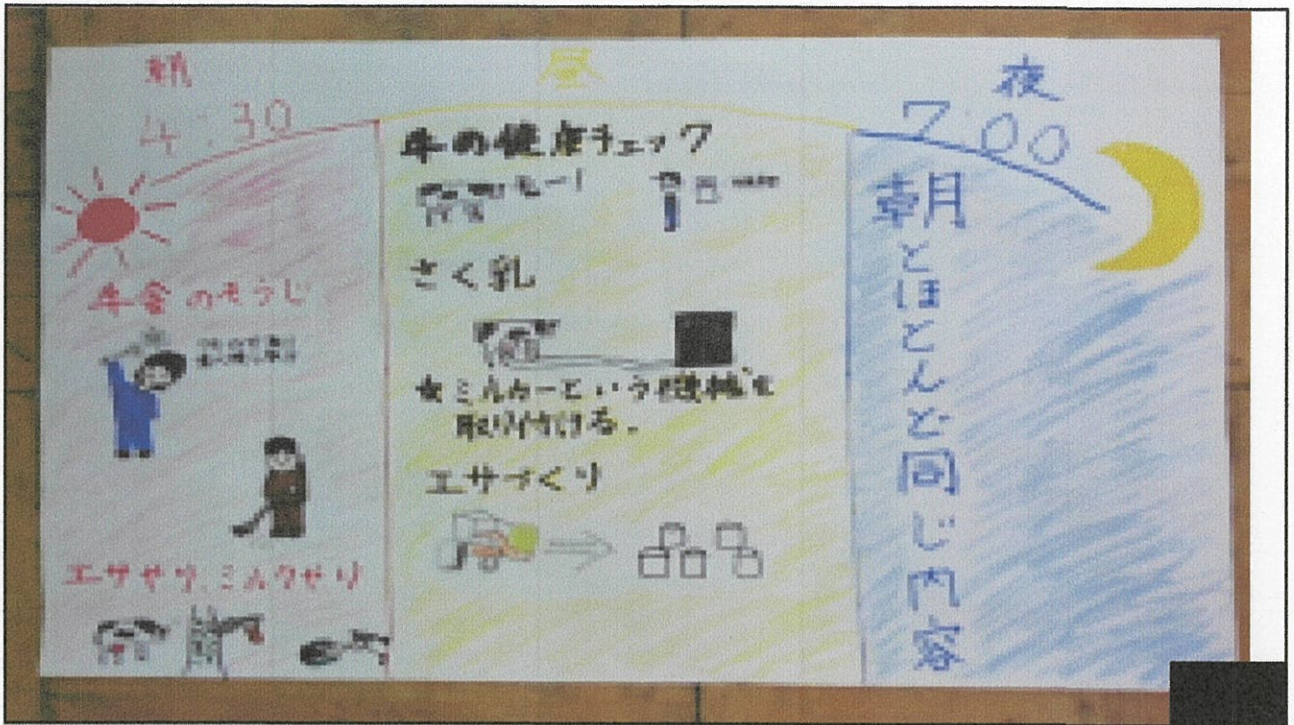 朝
4:30
牛舎のそうじ
エサやり、ミルクやり
昼
牛の健康チェック
モー!
さく乳
★ミルカーという機械を
取り付ける。
エサづくり
夜
7:00
朝とほとんど同じ内容